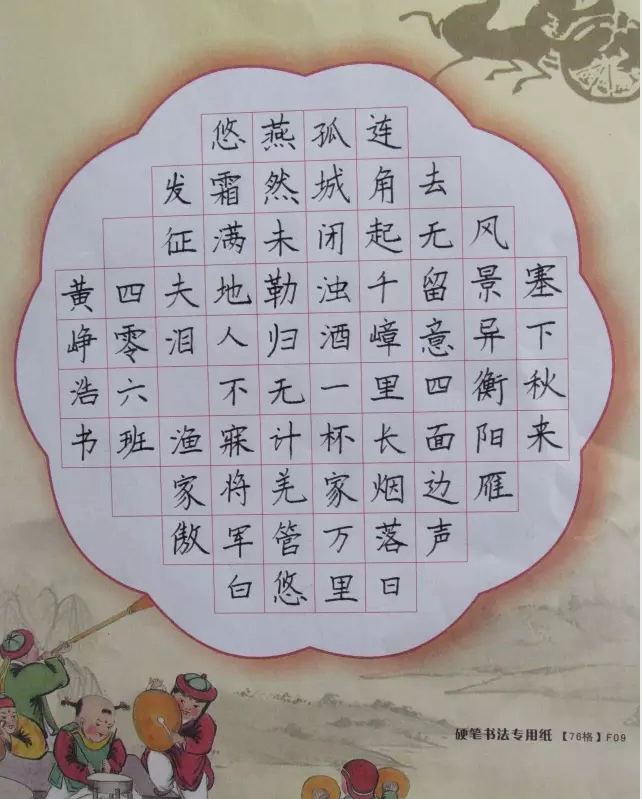 塞下秋来
风景异衡阳雁
去无留意四面边声
连角起千嶂里长烟落日
孤城闭浊酒一杯家万里
燕然未勒归无计羌管悠
悠霜满地人不寐将军白
发征夫泪 渔家傲
四零六班
黄峥浩书
硬笔书法专用纸【76格】F09